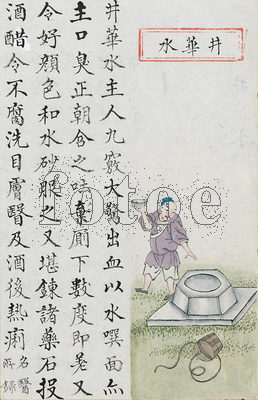 井華水
井華水主人九竅大驚出血以水噀面亦
主口臭正朝含之唾棄厠下數度即差又
令好顏色和水砂服之又堪鍊諸藥石投
酒醋令不腐洗目膚翳及酒後熱痢名醫
所錄
fotoe